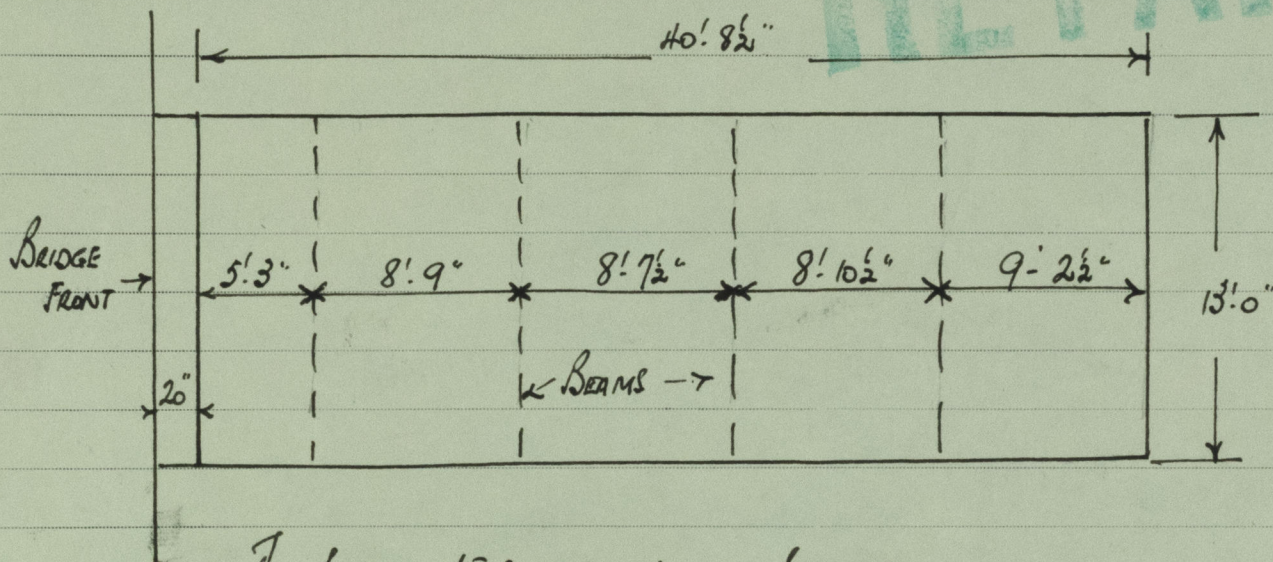 40'. 8½"
BRIDGE
FRONT
5'.3" 8'.9" 8'.7½" 8'.10½" 9-'2½"
13'.0"
20"
BEAMS